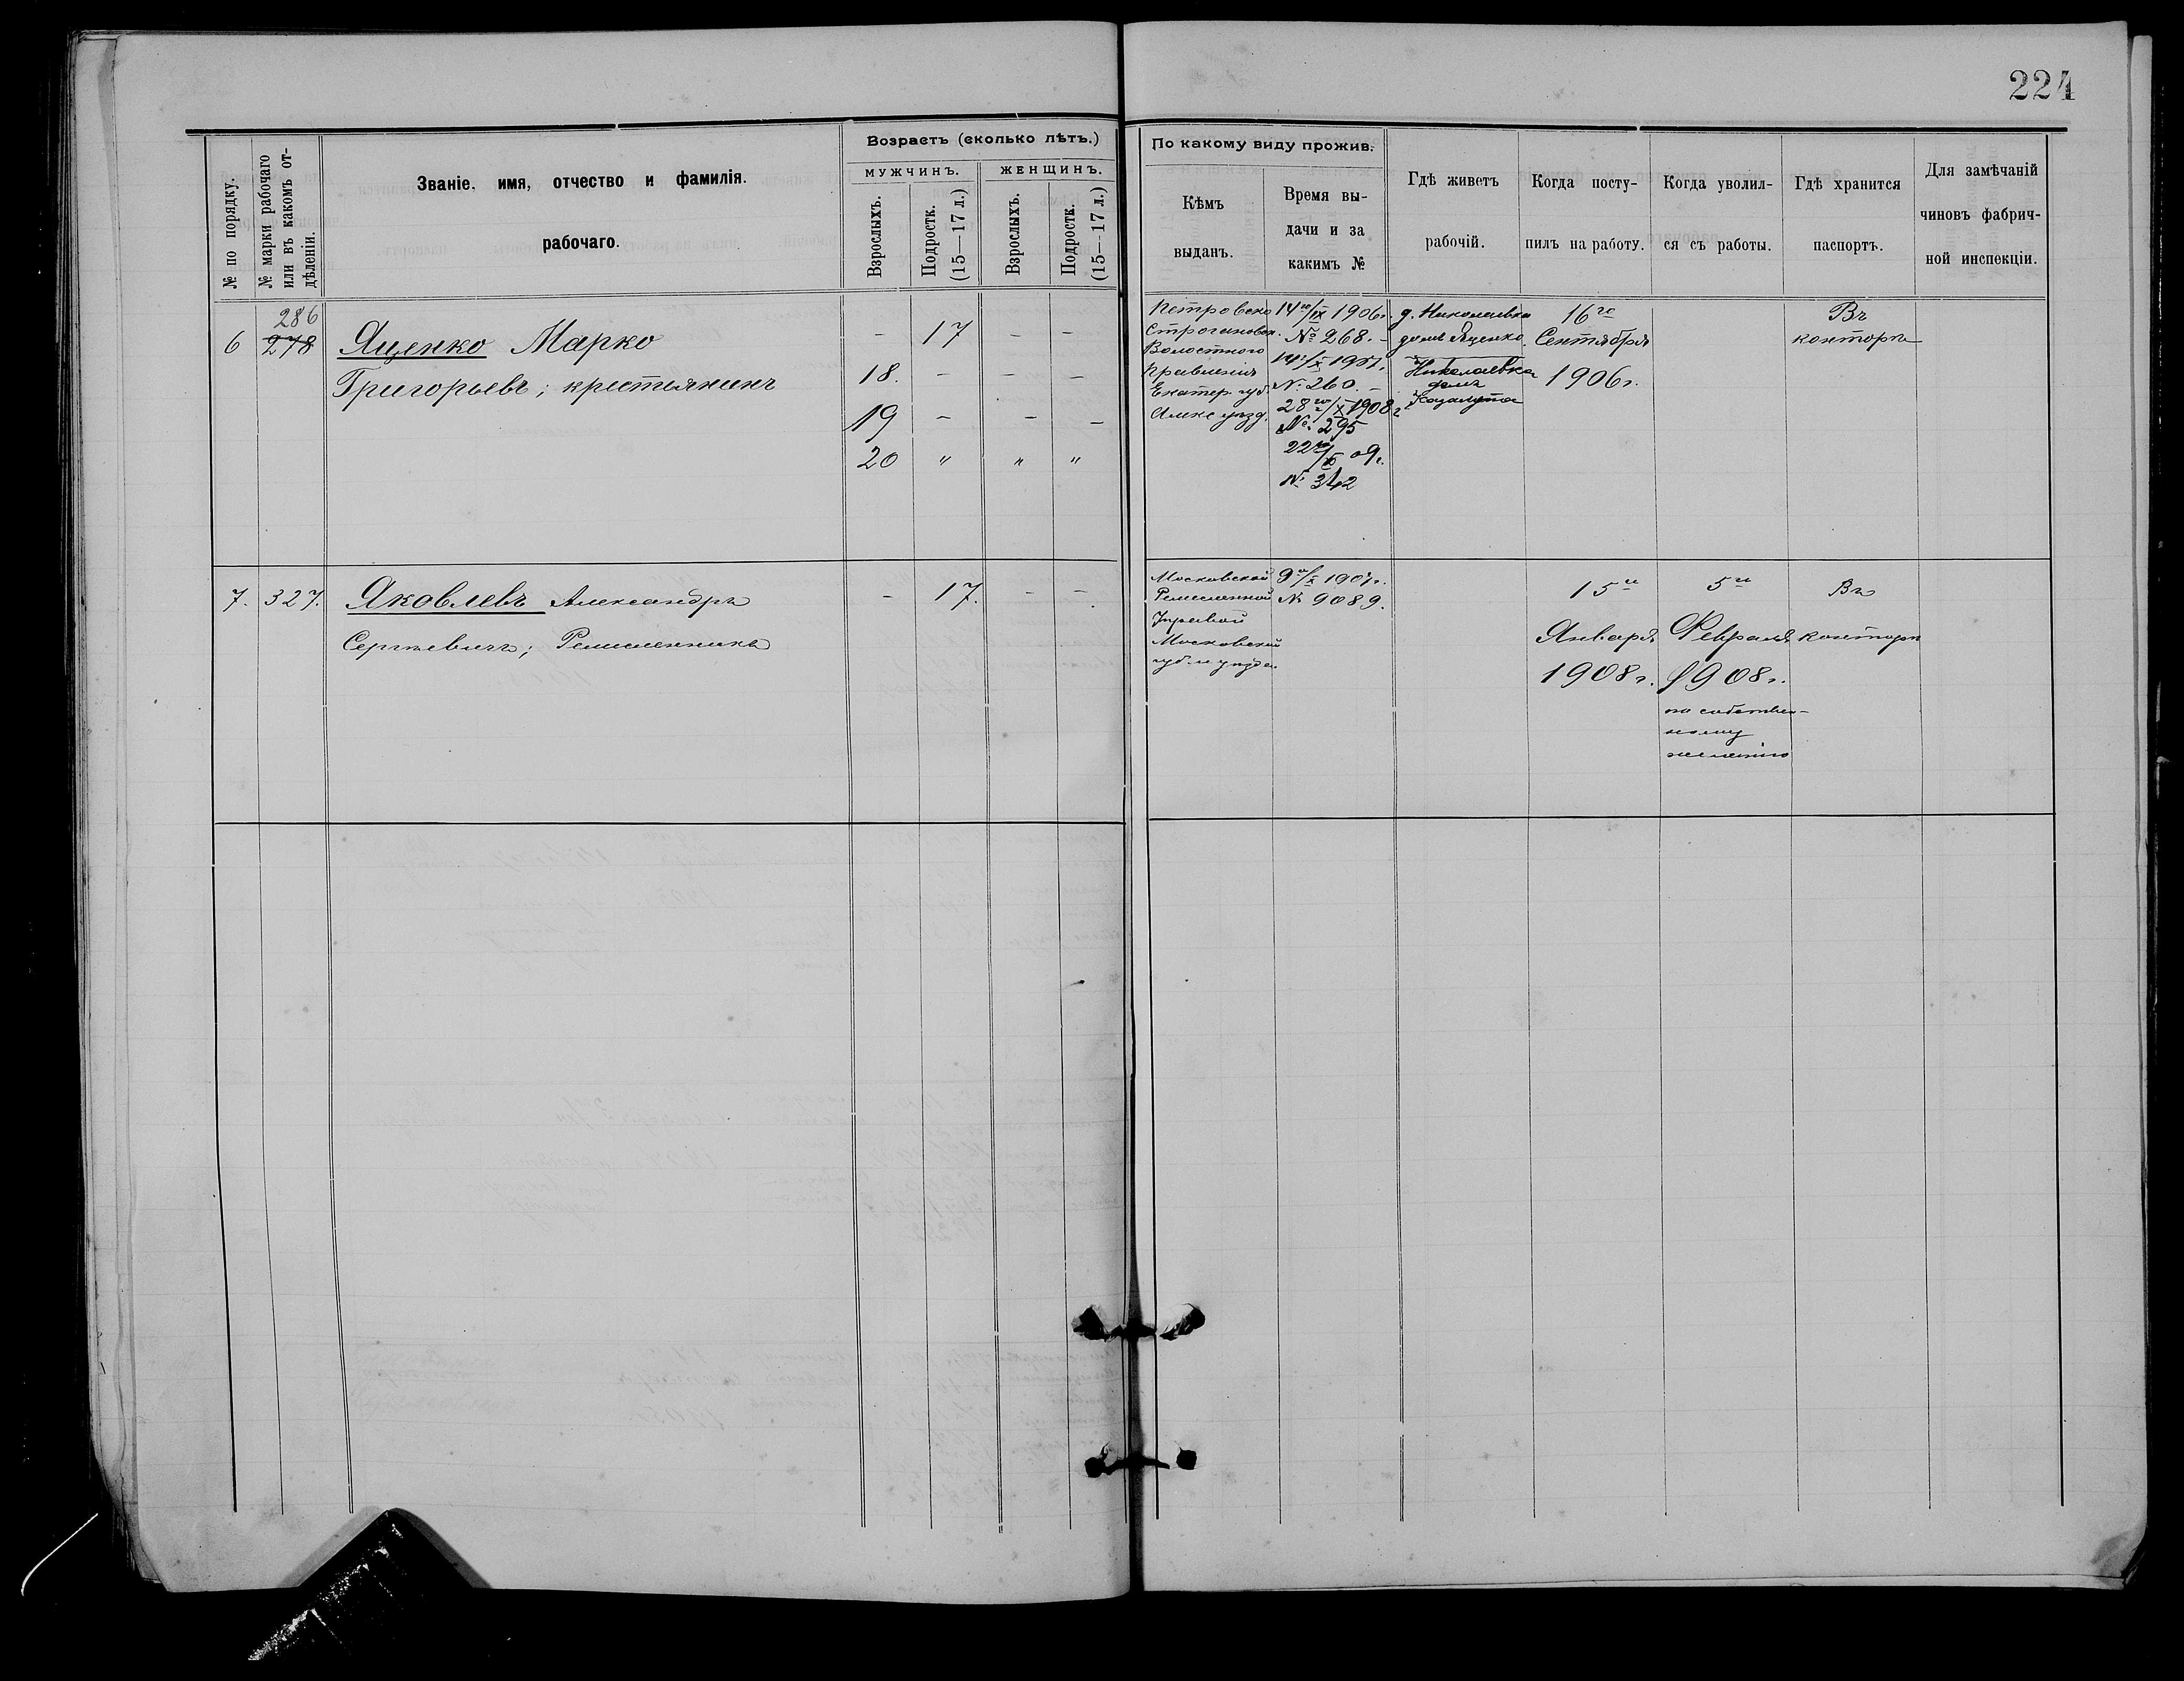 224
№ по порядку.
№ марки рабочаго
или въ какомъ от-
дѣленіи.
Званіе, имя, отчество и фамилія.
рабочаго.
Возрастъ (сколько лѣтъ.)
МУЖЧИНЪ.
ЖЕНЩИНЪ.
Взрослыхъ.
Подростк.
(15—17 л.)
Взрослыхъ.
Подростк.
(15—17 л.)
По какому виду прожив.
Кѣмъ
выданъ.
Время вы-
дачи и за
какимъ №
Гдѣ живетъ
рабочій.
Когда посту-
пилъ на работу.
Когда уволил-
ся съ работы.
Гдѣ хранится
паспортъ.
Для замѣчаній
чиновъ фабрич-
ной инспекціи.
6
286
278
Ященко Марко
Григорьевъ; крестьянинъ
– 17 – –
18. – – –
19 – – –
20 " " "
Петровско
Строгановск.
Волостного
Правленія
Екатер. губ.
Алекс уѣзд.
14го/IX 1906г.
№ 268. –
14г/X 1907.
№ 260. –
28го/X 1908г
№ 295
22го/XI 09г.
№ 342
д. Николаевка
домъ Ященко.
Николаевка
домъ
16го
Сентября
1906г.
Въ
конторѣ
7. 327.
Яковлевъ Александръ
Сергѣевичъ; Ремесленникъ
– 17. – –
Московской
Ремесленной
Управой
Московской
губ. и уѣзда.
9го/X 1907г.
№ 9089.
15го
Января
1908г.
5го
Февраля
1908г.
по собствен-
ному
желанію
Въ
конторѣ